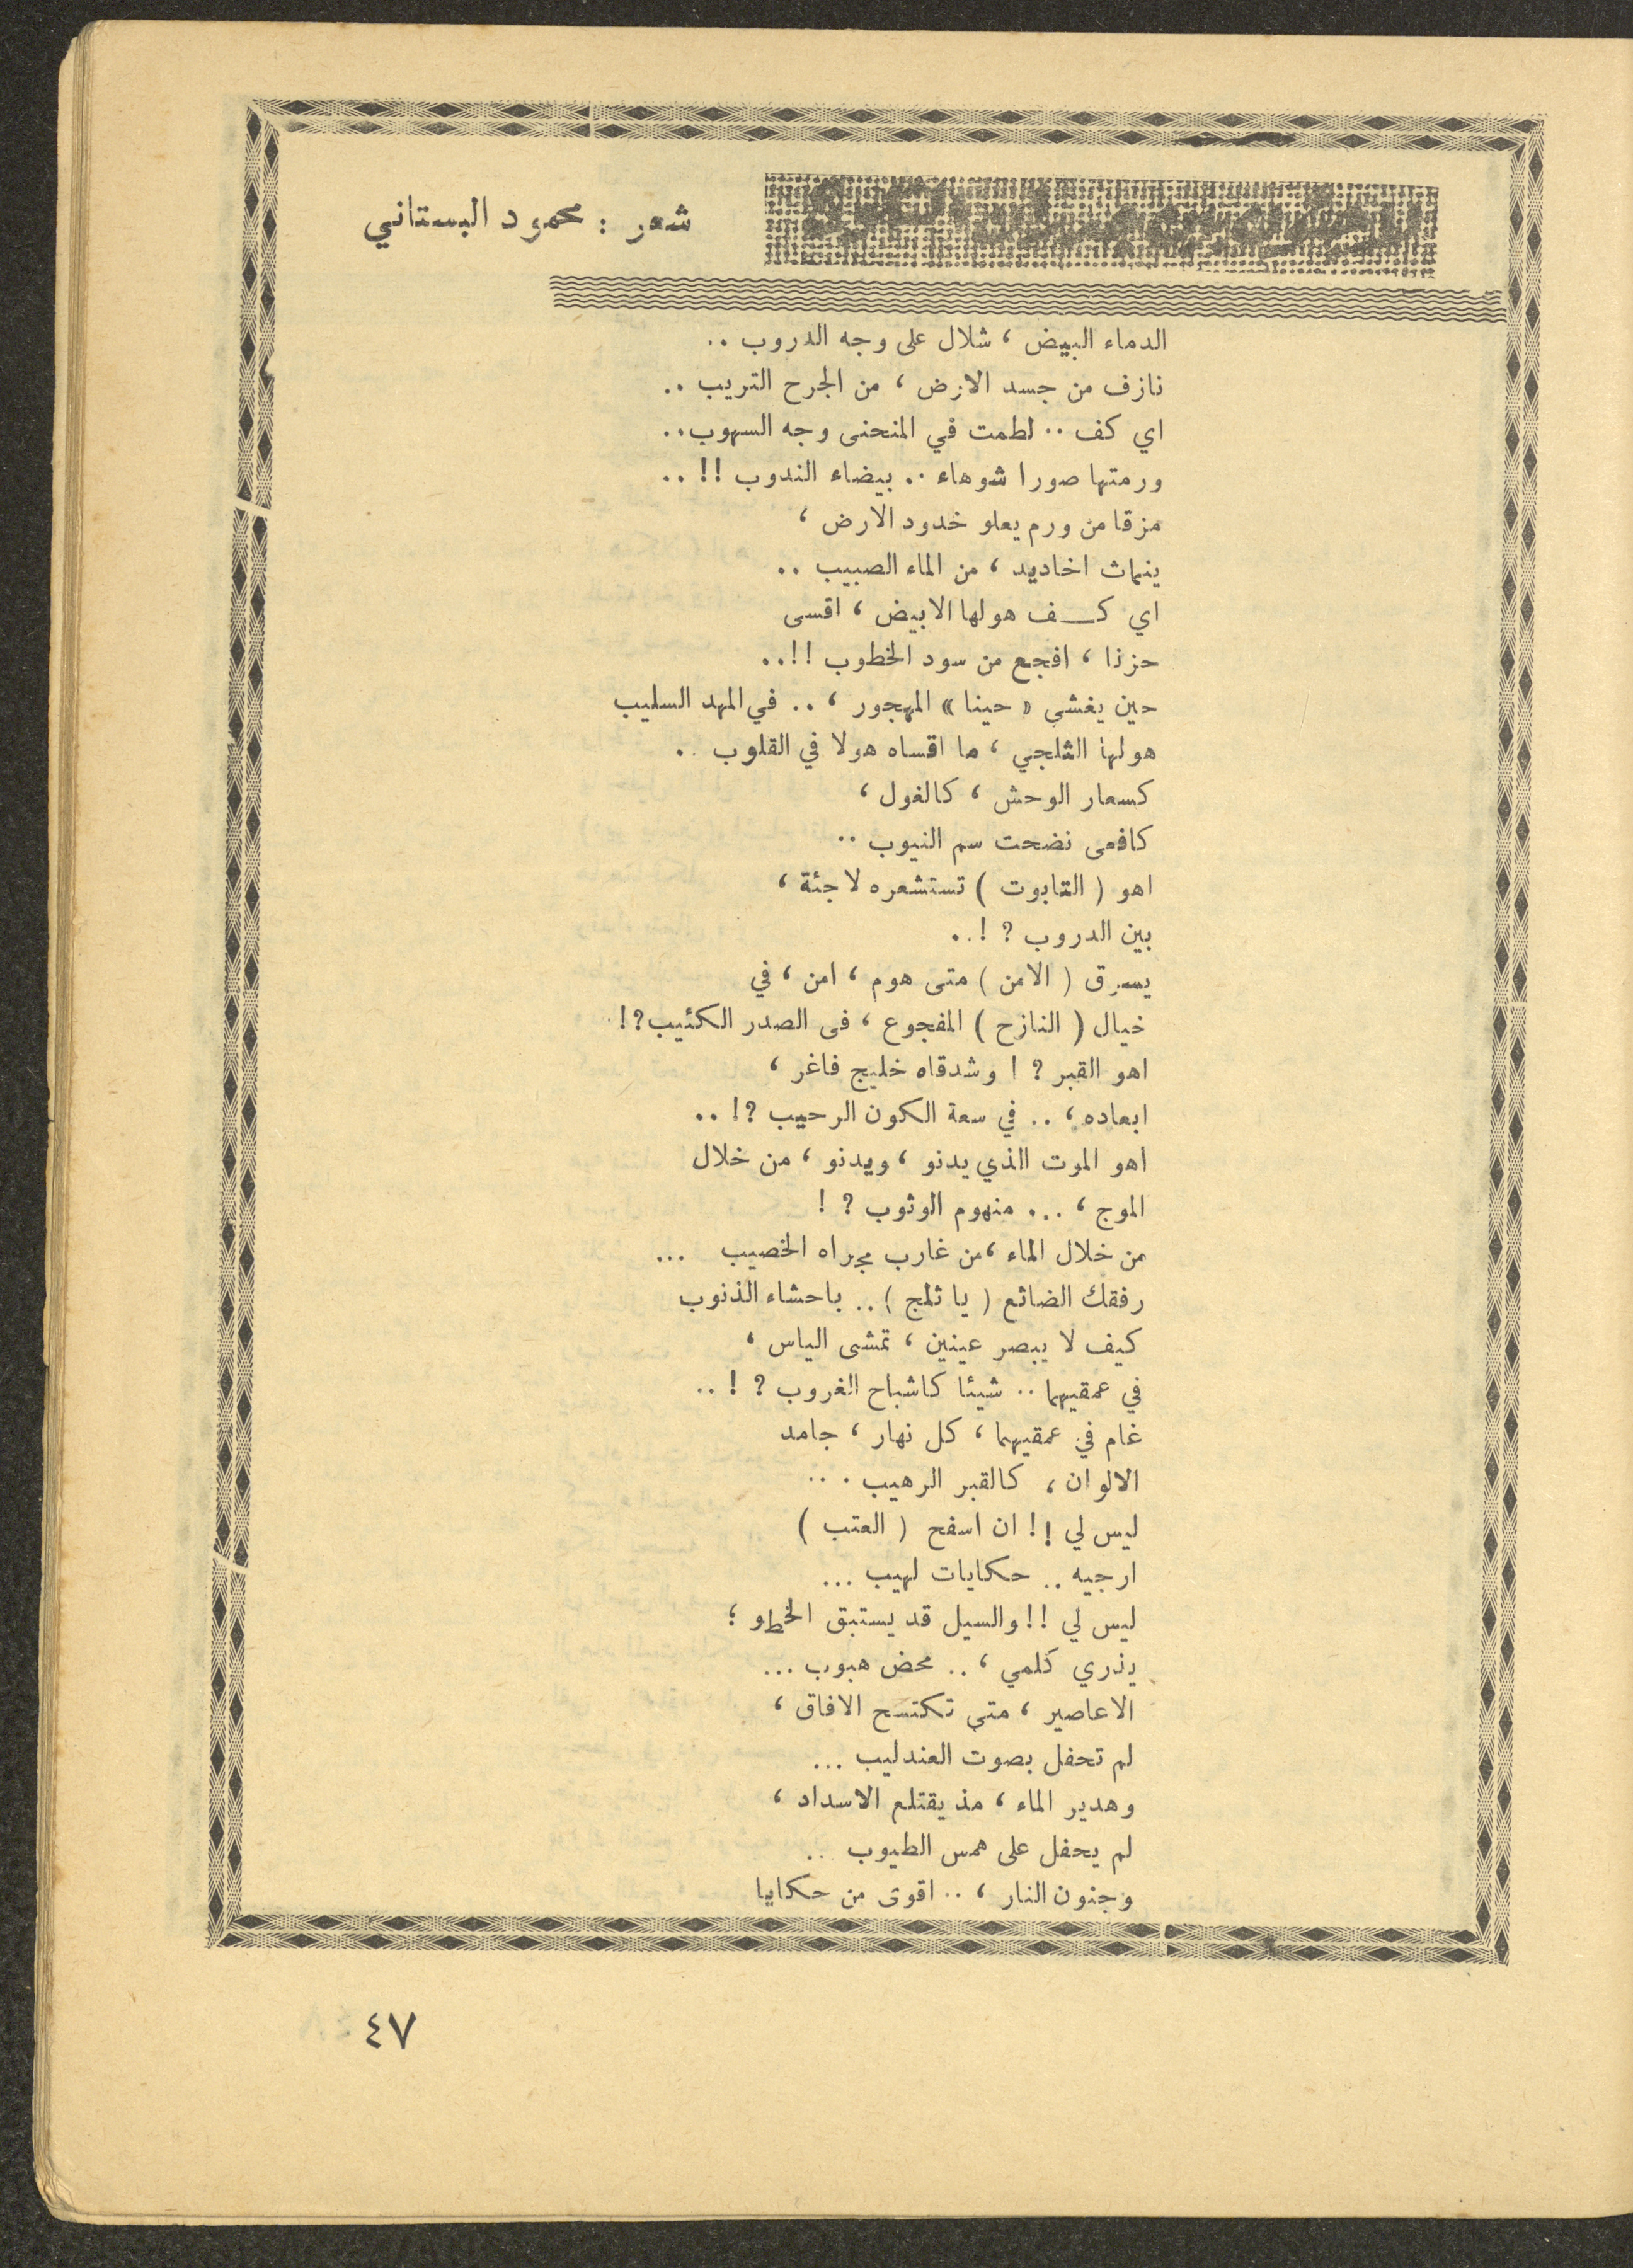 شعر : محمود البستاني
الدماء البيض ، شلال على وجه الدروب ..
نازف من جسد الارض ، من الجرح التريب ..
اي كف .. لطمت في المنحنى وجه السهوب ..
ورمتها صورا شوهاء .. بيضاء الندوب !! ..
مزقا من ورم يعلو خدود الارض ،
ينماث اخاديد ، من الماء الصبيب ..
اي كــف هولها الابيض ، اقسى
حزنا ، افجع من سود الخطوب !! ..
حين يغشى « حينا » المهجور ، .. في المهد السليب
هولها الثلجي ، ما اقساه هولا في القلوب ..
كسعار الوحش ، كالغول ،
كافعى نضحت سم النيوب ..
اهو ( التابوت ) تستشعره لا جثة ،
بين الدروب ? ! ..
يسرق ( الامن ) متى هوم ، امن ، في
خيال ( النازح ) المفجوع ، فى الصدر الكئيب ?! .
اهو القبر ? ! وشدقاه خليج فاغر ،
ابعاده ، .. في سعة الكون الرحيب ?! ..
اهو الموت الذي يدنو ، ويدنو ، من خلال
الموج ، ... منهوم الوثوب ? !
من خلال الماء ، من غارب مجراه الخصيب ...
رفقك الضائع ( يا ثلج ) .. باحشاء الذنوب
كيف لا يبصر عينين ، تمشى الياس ،
في عمقيهما .. شيئا كاشباح الغروب ? ! ..
غام في عمقيهما ، كل نهار ، جامد
الالوان ، كالقبر الرهيب ...
ليس لي !! ان اسفح ( العتب )
ارجيه .. حكايات لهيب ...
ليس لي !! والسيل قد يستبق الخطو ؛
يذري كلمي ، .. محض هبوب ...
الاعاصير ، متى تكتسح الافاق ،
لم تحفل بصوت العندليب ...
وهدير الماء ، مذ يقتلع الاسداد ،
لم يحفل على همس الطيوب ..
وجنون النار ، .. اقوى من حكايا
٤٧